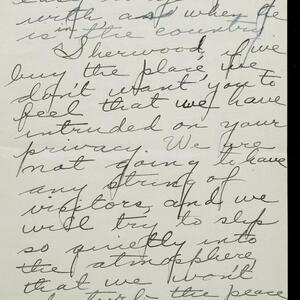 with, as when he
is in the country.
Sherwood, if we
buy the place, we
don't want you to
feel that we have
intruded on your
privacy. We are
not going to have
any string of
visitors, and we
will try to slip
so quietly into
the atmosphere
that we won't
the peace